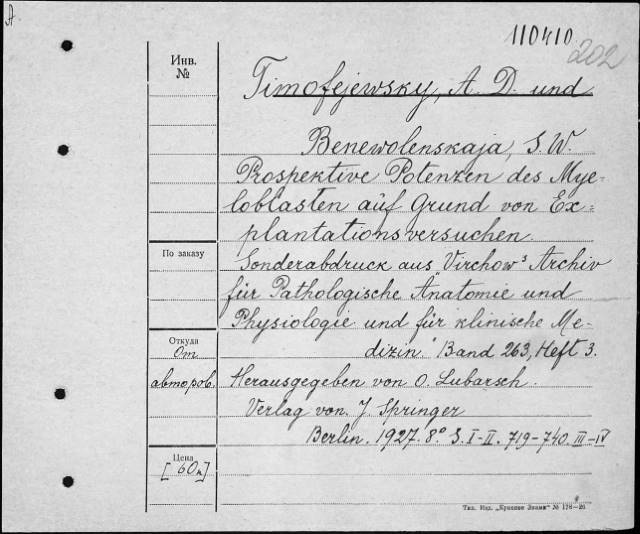 A
110410
202
Инв.
№
Timofejewsky, A. D. und
Benewolenskaja, S. W.
Prospektive Potenzen des Mye-
loblasten auf Grund von Ex-
plantationsversuchen.
По заказу
Sonderabdruck aus „Virchows Archiv
für Pathologische Anatomie und
Physiologie und für klinische Me-
dizin." Band 263, Heft 3.
Откуда
От
авторов.
Herausgegeben von O. Lubarsch.
Verlag von J. Springer
Berlin. 1927. 8° S. I-II. 719-740. III-IV
Цена
[60к]
Тип. Изд. „Красное Знамя" № 178—26